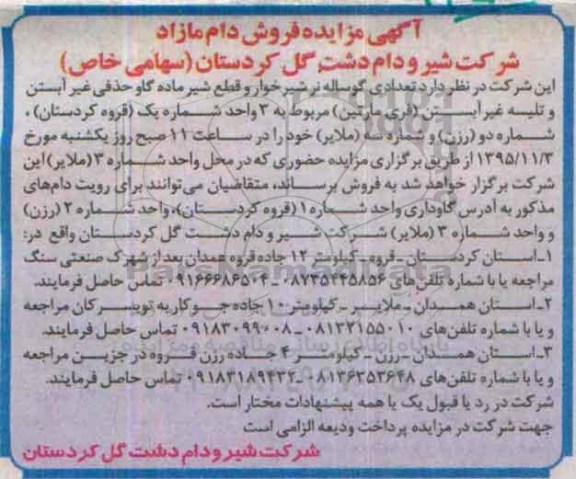 آگهی مزایده فروش دام مازاد
شرکت شیر و دام دشت گل کردستان (سهامی خاص)
این شرکت در نظر دارد تعدادی گوساله نر شیرخوار و قطع شیر ماده گاو حذفی غیر آبستن
و تلیسه غیر آبستن (فری مارتین) مربوط به ۳ واحد شماره یک (قروه کردستان)،
شماره دو (رزن) و شماره سه (ملایر) خود را در ساعت ۱۱ صبح روز یکشنبه مورخ
۱۳۹۵/۱۱/۳ از طریق برگزاری مزایده حضوری که در محل واحد شماره ۳ (ملایر) این
شرکت برگزار خواهد شد به فروش برساند، متقاضیان می‌توانند برای رویت دام‌های
مذکور به آدرس گاوداری واحد شماره ۱ (قروه کردستان)، واحد شماره ۲ (رزن)
و واحد شماره ۳ (ملایر) شرکت شیر و دام دشت گل کردستان واقع در:
۱ـ استان کردستان ـ قروه ـ کیلومتر ۱۲ جاده قروه همدان بعد از شهرک صنعتی سنگ
مراجعه یا با شماره تلفن‌های ۰۸۷۳۵۲۴۵۸۵۶ ـ ۰۹۱۶۶۶۸۶۵۰۴ تماس حاصل فرمایند.
۲ـ استان همدان ـ ملایر ـ کیلومتر ۱۰ جاده جوکار به تویسرکان مراجعه
و یا با شماره تلفن‌های ۰۸۱۳۲۱۵۵۰۱۰ ـ ۰۹۱۸۳۰۹۹۰۰۸ تماس حاصل فرمایند.
۳ـ استان همدان ـ رزن ـ کیلومتر ۴ جاده رزن قروه در جزین مراجعه
و یا با شماره تلفن‌های ۰۸۱۳۶۲۵۳۶۴۸ ـ ۰۹۱۸۳۱۸۹۴۳۲ تماس حاصل فرمایند.
شرکت در رد یا قبول یک یا همه پیشنهادات مختار است.
جهت شرکت در مزایده پرداخت ودیعه الزامی است
شرکت شیر و دام دشت گل کردستان